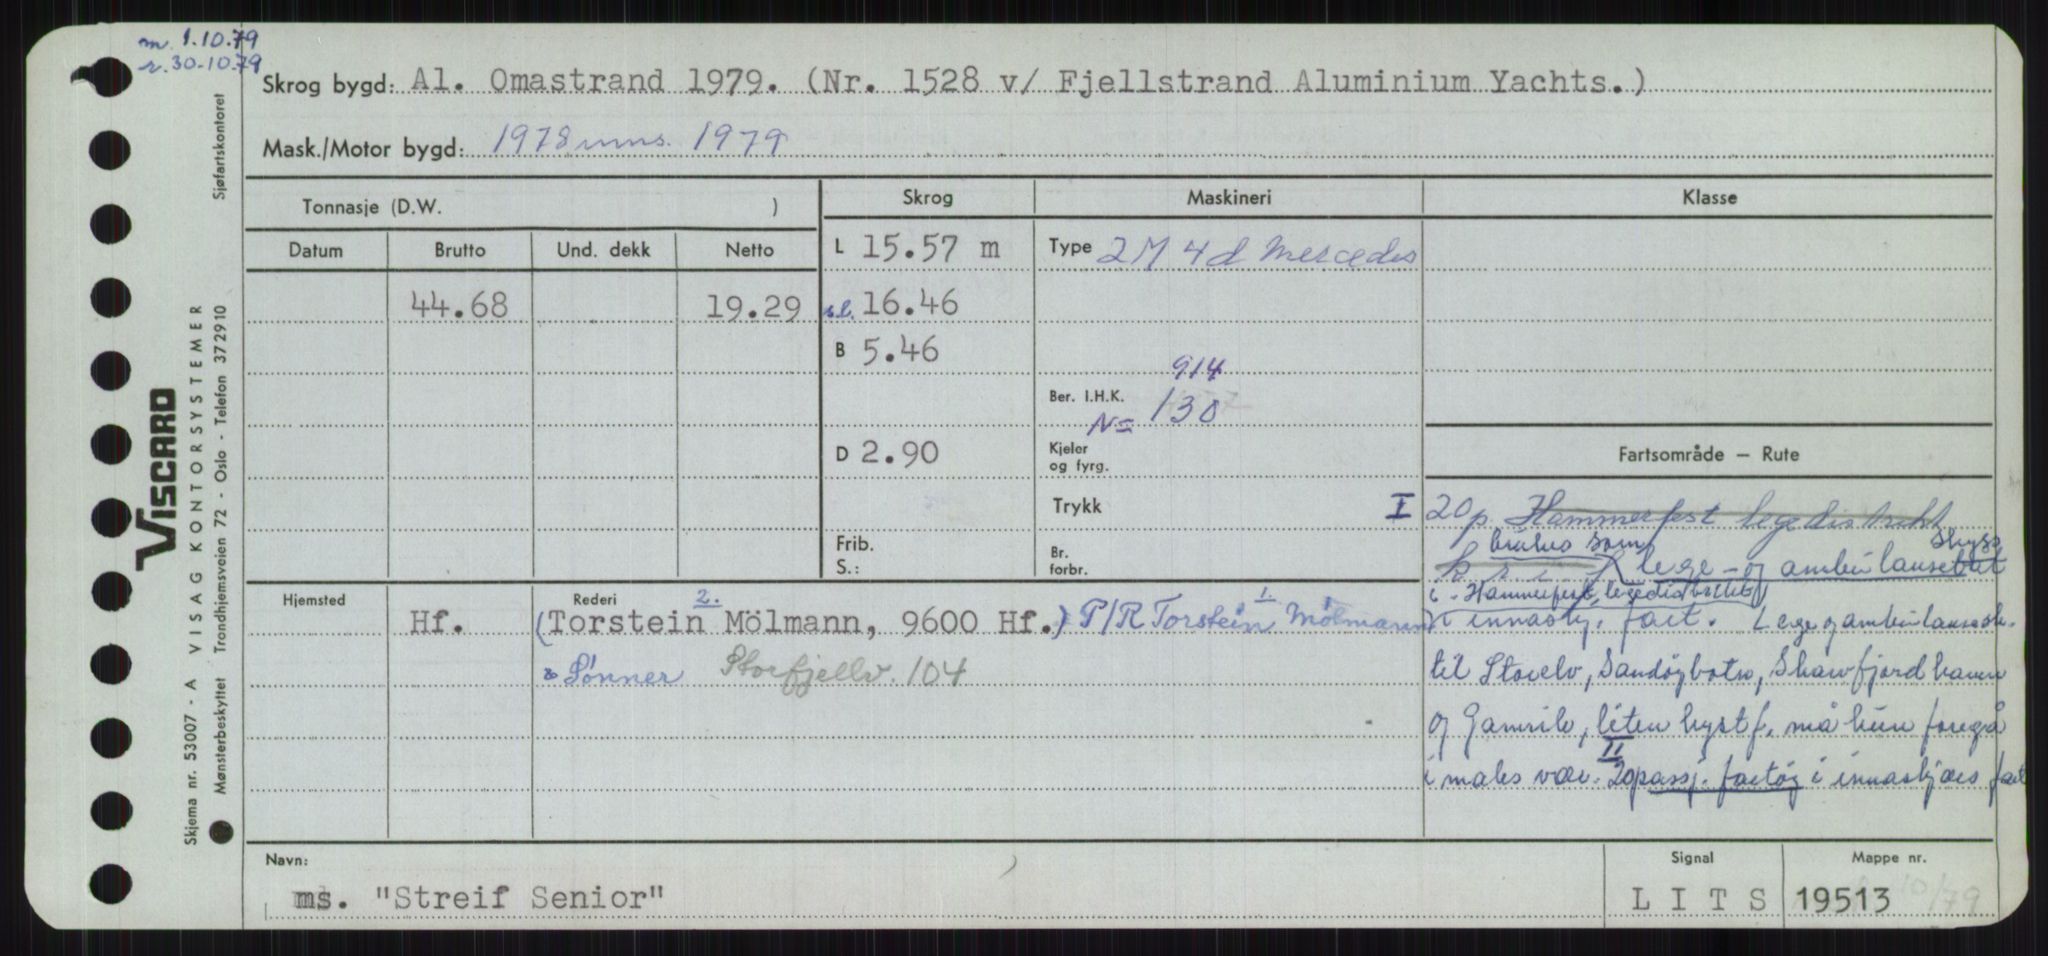 m. 1.10.79
r. 30-10.79
Skrog bygd: Al. Omastrand 1979. (Nr. 1528 v/ Fjellstrand Aluminium Yachts.)
Mask./Motor bygd: 1978 mms. 1979
Tonnasje (D.W. )
Skrog
Maskineri
Klasse
Datum Brutto Und. dekk Netto
L 15.57 m
Type 2 M 4 d Mercedes
44.68 19.29
s.l. 16.46
B 5.46
914
Ber. I.H.K. 130
N=
D 2.90
Kjeler
og fyrg.
Fartsområde — Rute
Trykk
Frib.
S.:
Br.
forbr.
I 20 p. Hammerfest legedistrikt
brukes som skyss
k s i f lege- og ambulansebåt
i Hammerfest legedistrikt
i innaskj. fart. Lege og ambulansesk.
til
og liten kyst f. må kun foregå
i males vær. II 20 passj. fartøy i innaskjærs fart
Hjemsted Rederi
Hf. (Torstein 2. Mölmann, 9600 Hf.) P/R Torstein 1. Mölmann
& Sønner Storfjellv. 104
Navn:
ms. "Streif Senior"
Signal
L I T S
Mappe nr.
19513
10/79
VISCARD
VISAG KONTORSYSTEMER
Skjema nr. 53007 - A
Sjøfartskontoret
Mønsterbeskyttet Trondhjemsveien 72 - Oslo - Telefon 372910